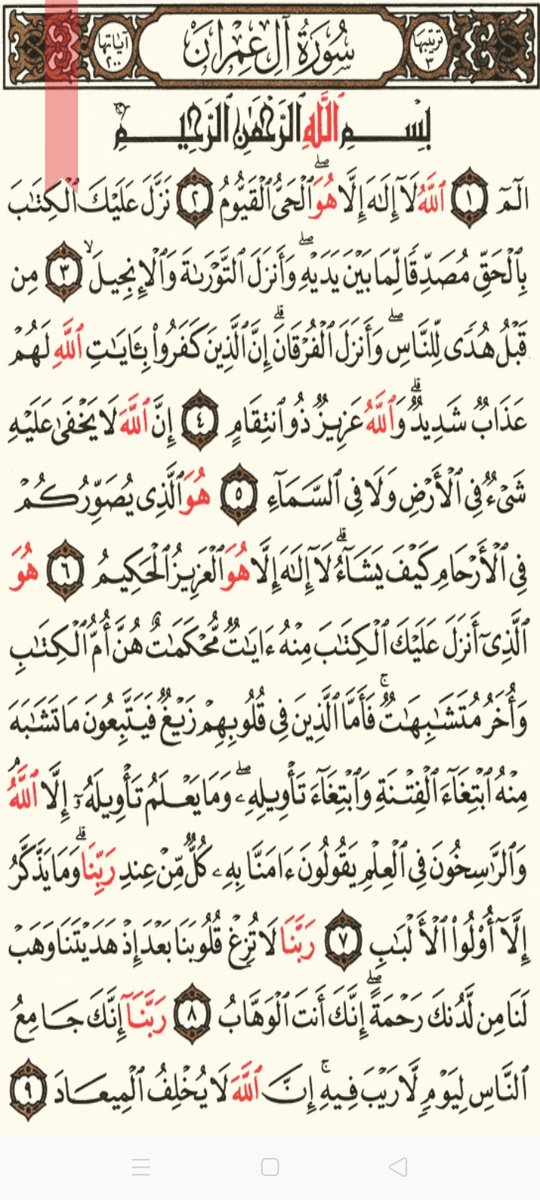 ترتيبها ٣ سُورَةُ آلِ عِمْرَانَ آياتها ٢٠٠
بِسْمِ ٱللَّهِ ٱلرَّحْمَٰنِ ٱلرَّحِيمِ
الٓمٓ ١ ٱللَّهُ لَآ إِلَٰهَ إِلَّا هُوَ ۖ ٱلْحَىُّ ٱلْقَيُّومُ ٢ نَزَّلَ عَلَيْكَ ٱلْكِتَٰبَ
بِٱلْحَقِّ مُصَدِّقًا لِّمَا بَيْنَ يَدَيْهِ ۖ وَأَنزَلَ ٱلتَّوْرَىٰةَ وَٱلْإِنجِيلَ ۙ ٣ مِن
قَبْلُ هُدًى لِّلنَّاسِ ۖ وَأَنزَلَ ٱلْفُرْقَانَ ۗ إِنَّ ٱلَّذِينَ كَفَرُوا۟ بِـَٔايَٰتِ ٱللَّهِ لَهُمْ
عَذَابٌ شَدِيدٌ ۗ وَٱللَّهُ عَزِيزٌ ذُو ٱنتِقَامٍ ٤ إِنَّ ٱللَّهَ لَا يَخْفَىٰ عَلَيْهِ
شَىْءٌ فِى ٱلْأَرْضِ وَلَا فِى ٱلسَّمَآءِ ٥ هُوَ ٱلَّذِى يُصَوِّرُكُمْ
فِى ٱلْأَرْحَامِ كَيْفَ يَشَآءُ ۗ لَآ إِلَٰهَ إِلَّا هُوَ ٱلْعَزِيزُ ٱلْحَكِيمُ ٦ هُوَ
ٱلَّذِىٓ أَنزَلَ عَلَيْكَ ٱلْكِتَٰبَ مِنْهُ ءَايَٰتٌ مُّحْكَمَٰتٌ هُنَّ أُمُّ ٱلْكِتَٰبِ
وَأُخَرُ مُتَشَٰبِهَٰتٌ ۖ فَأَمَّا ٱلَّذِينَ فِى قُلُوبِهِمْ زَيْغٌ فَيَتَّبِعُونَ مَا تَشَٰبَهَ
مِنْهُ ٱبْتِغَآءَ ٱلْفِتْنَةِ وَٱبْتِغَآءَ تَأْوِيلِهِۦ ۖ وَمَا يَعْلَمُ تَأْوِيلَهُۥٓ إِلَّا ٱللَّهُ ۗ
وَٱلرَّٰسِخُونَ فِى ٱلْعِلْمِ يَقُولُونَ ءَامَنَّا بِهِۦ كُلٌّ مِّنْ عِندِ رَبِّنَا ۗ وَمَا يَذَّكَّرُ
إِلَّآ أُو۟لُوا۟ ٱلْأَلْبَٰبِ ٧ رَبَّنَا لَا تُزِغْ قُلُوبَنَا بَعْدَ إِذْ هَدَيْتَنَا وَهَبْ
لَنَا مِن لَّدُنكَ رَحْمَةً ۖ إِنَّكَ أَنتَ ٱلْوَهَّابُ ٨ رَبَّنَآ إِنَّكَ جَامِعُ
ٱلنَّاسِ لِيَوْمٍ لَّا رَيْبَ فِيهِ ۚ إِنَّ ٱللَّهَ لَا يُخْلِفُ ٱلْمِيعَادَ ٩